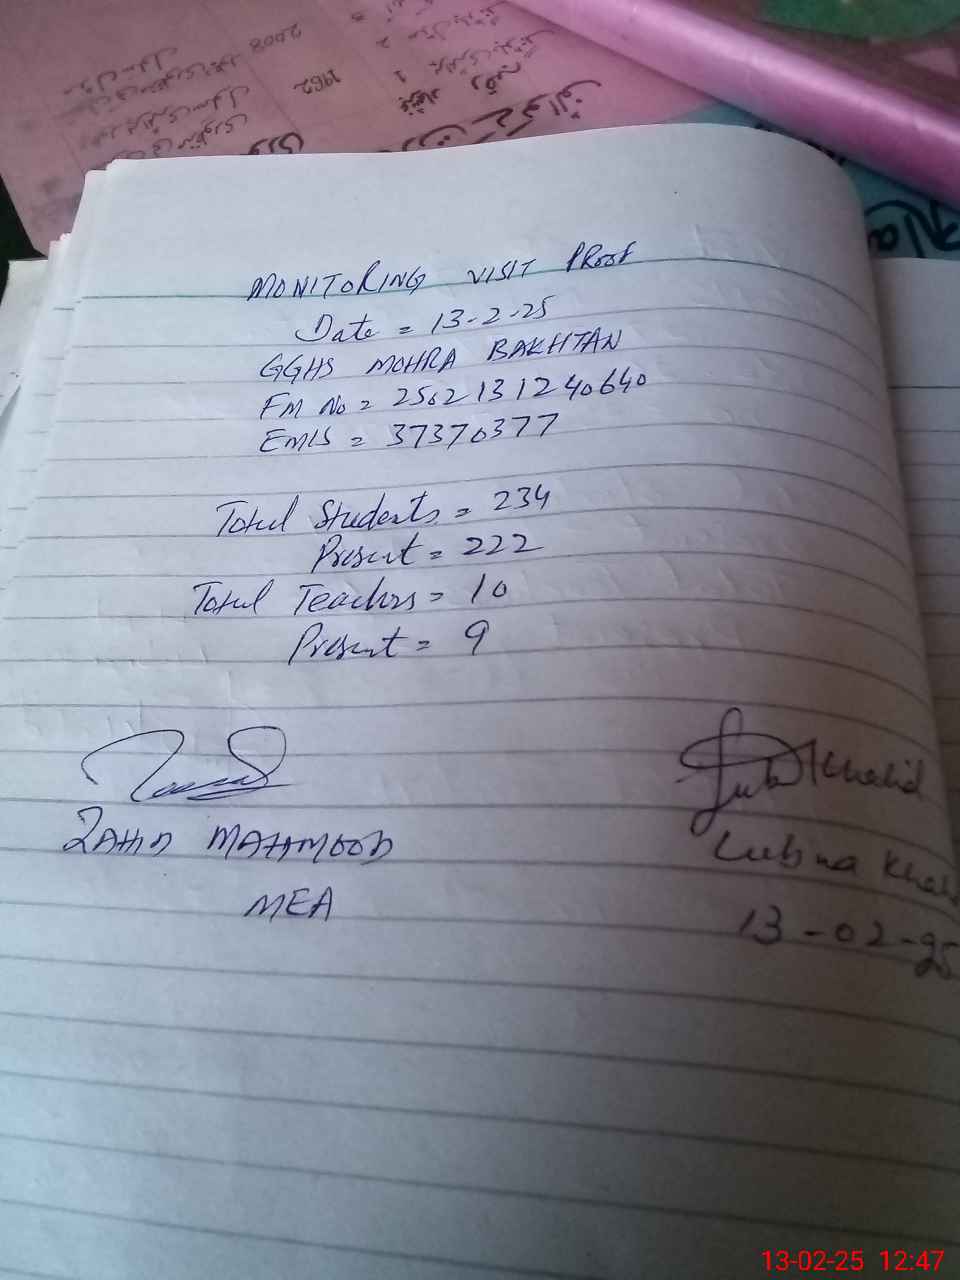 2008
1962
MONITORING VISIT PROOF
Date = 13-2-25
GGHS MOHRA BAKHTAN
FM No = 2502131240640
EMIS = 37370377
Total Students = 234
Present = 222
Total Teachers = 10
Present = 9
Khalid
ZAHID MAHMOOD
Lubna Khali
MEA
13-02-25
13-02-25 12:47